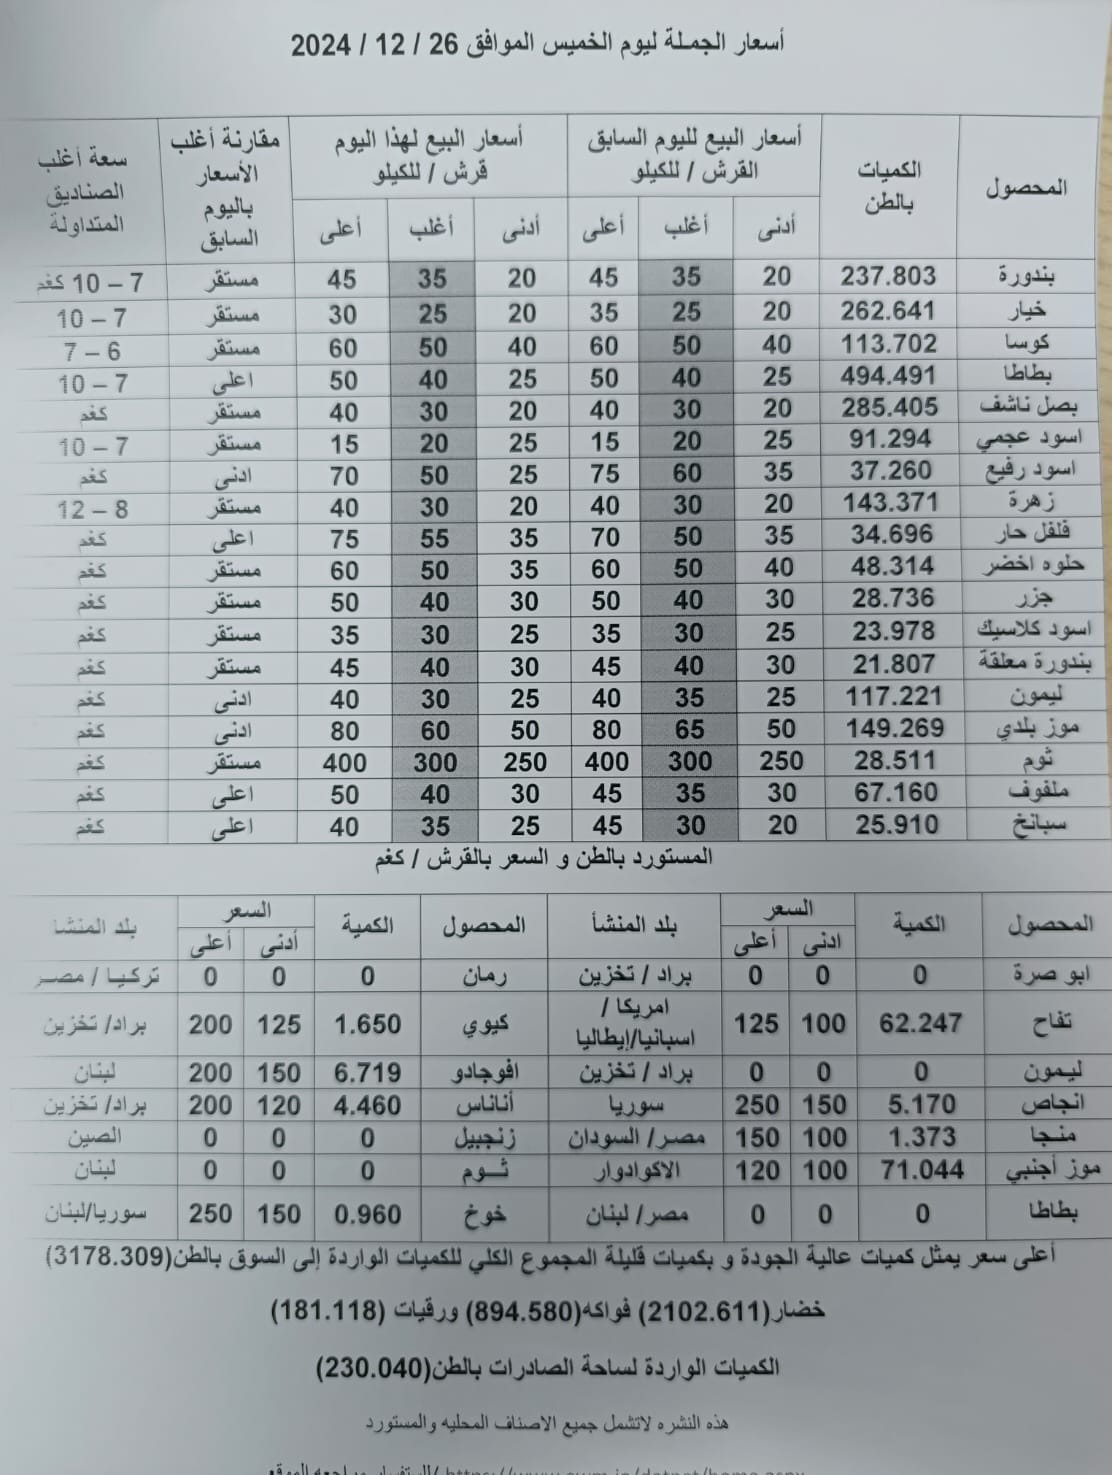 أسعار الجملة ليوم الخميس الموافق 26 / 12 / 2024
المحصول الكميات بالطن أسعار البيع لليوم السابق القرش / للكيلو أسعار البيع لهذا اليوم قرش / للكيلو مقارنة أغلب الأسعار باليوم السابق سعة أغلب الصناديق المتداولة
أدنى أغلب أعلى أدنى أغلب أعلى
بندورة 237.803 20 35 45 20 35 45 مستقر 7 – 10 كغم
خيار 262.641 20 25 35 20 25 30 مستقر 7 – 10
كوسا 113.702 40 50 60 40 50 60 مستقر 6 – 7
بطاطا 494.491 25 40 50 25 40 50 اعلى 7 – 10
بصل ناشف 285.405 20 30 40 20 30 40 مستقر كغم
اسود عجمي 91.294 25 20 15 25 20 15 مستقر 7 – 10
اسود رفيع 37.260 35 60 75 25 50 70 ادنى كغم
زهرة 143.371 20 30 40 20 30 40 مستقر 8 – 12
فلفل حار 34.696 35 50 70 35 55 75 اعلى كغم
حلوه اخضر 48.314 40 50 60 35 50 60 مستقر كغم
جزر 28.736 30 40 50 30 40 50 مستقر كغم
اسود كلاسيك 23.978 25 30 35 25 30 35 مستقر كغم
بندورة معلقة 21.807 30 40 45 30 40 45 مستقر كغم
ليمون 117.221 25 35 40 25 30 40 ادنى كغم
موز بلدي 149.269 50 65 80 50 60 80 ادنى كغم
ثوم 28.511 250 300 400 250 300 400 مستقر كغم
ملفوف 67.160 30 35 45 30 40 50 اعلى كغم
سبانخ 25.910 20 30 45 25 35 40 اعلى كغم
المستورد بالطن و السعر بالقرش / كغم
المحصول الكمية السعر بلد المنشأ المحصول الكمية السعر بلد المنشا
ادنى أعلى أدنى أعلى
ابو صرة 0 0 0 براد / تخزين رمان 0 0 0 تركيا / مصر
تفاح 62.247 100 125 امريكا / اسبانيا/إيطاليا كيوي 1.650 125 200 براد/ تخزين
ليمون 0 0 0 براد / تخزين افوجادو 6.719 150 200 لبنان
انجاص 5.170 150 250 سوريا أناناس 4.460 120 200 براد/ تخزين
منجا 1.373 100 150 مصر/ السودان زنجبيل 0 0 0 الصين
موز أجنبي 71.044 100 120 الاكوادوار ثـوم 0 0 0 لبنان
بطاطا 0 0 0 مصر/ لبنان خوخ 0.960 150 250 سوريا/لبنان
أعلى سعر يمثل كميات عالية الجودة و بكميات قليلة المجموع الكلي للكميات الواردة إلى السوق بالطن(3178.309)
خضار(2102.611) فواكه(894.580) ورقيات (181.118)
الكميات الواردة لساحة الصادرات بالطن(230.040)
هذه النشره لاتشمل جميع الاصناف المحليه والمستورد